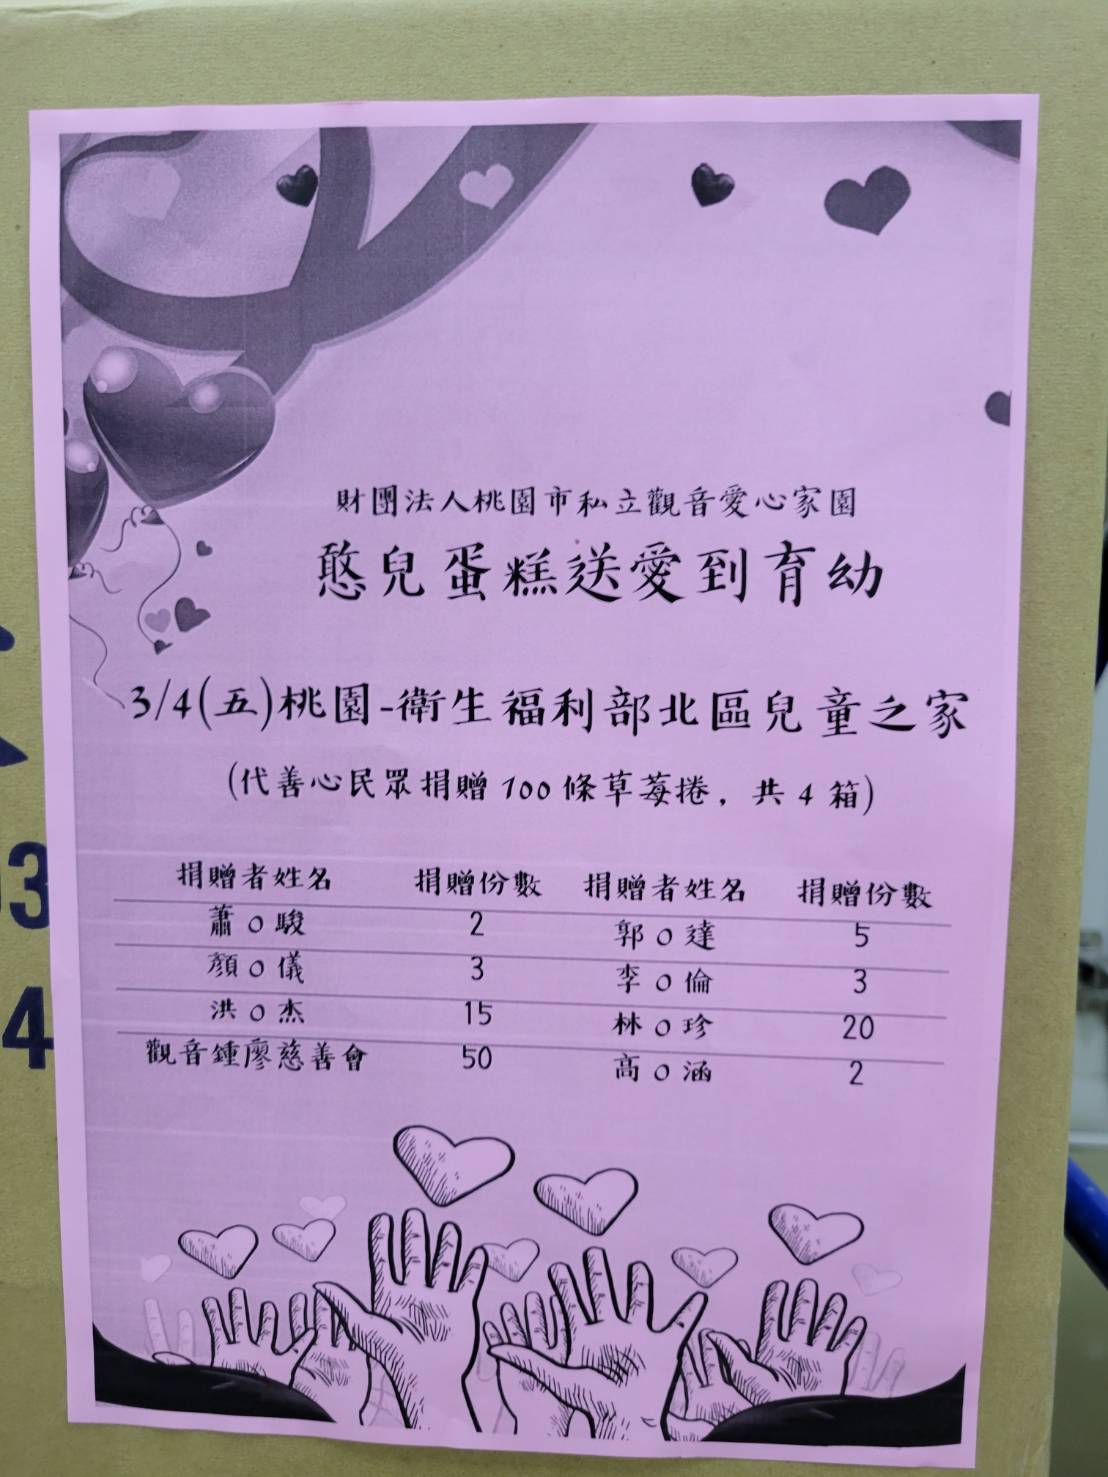 財團法人桃園市私立觀音愛心家園
憨兒蛋糕送愛到育幼
3/4(五)桃園-衛生福利部北區兒童之家
(代善心民眾捐贈 100 條草莓捲，共 4 箱)
捐贈者姓名 捐贈份數 捐贈者姓名 捐贈份數
蕭 O 駿 2 郭 O 達 5
顏 O 儀 3 李 O 倫 3
洪 O 杰 15 林 O 珍 20
觀音鍾廖慈善會 50 高 O 涵 2
3
4